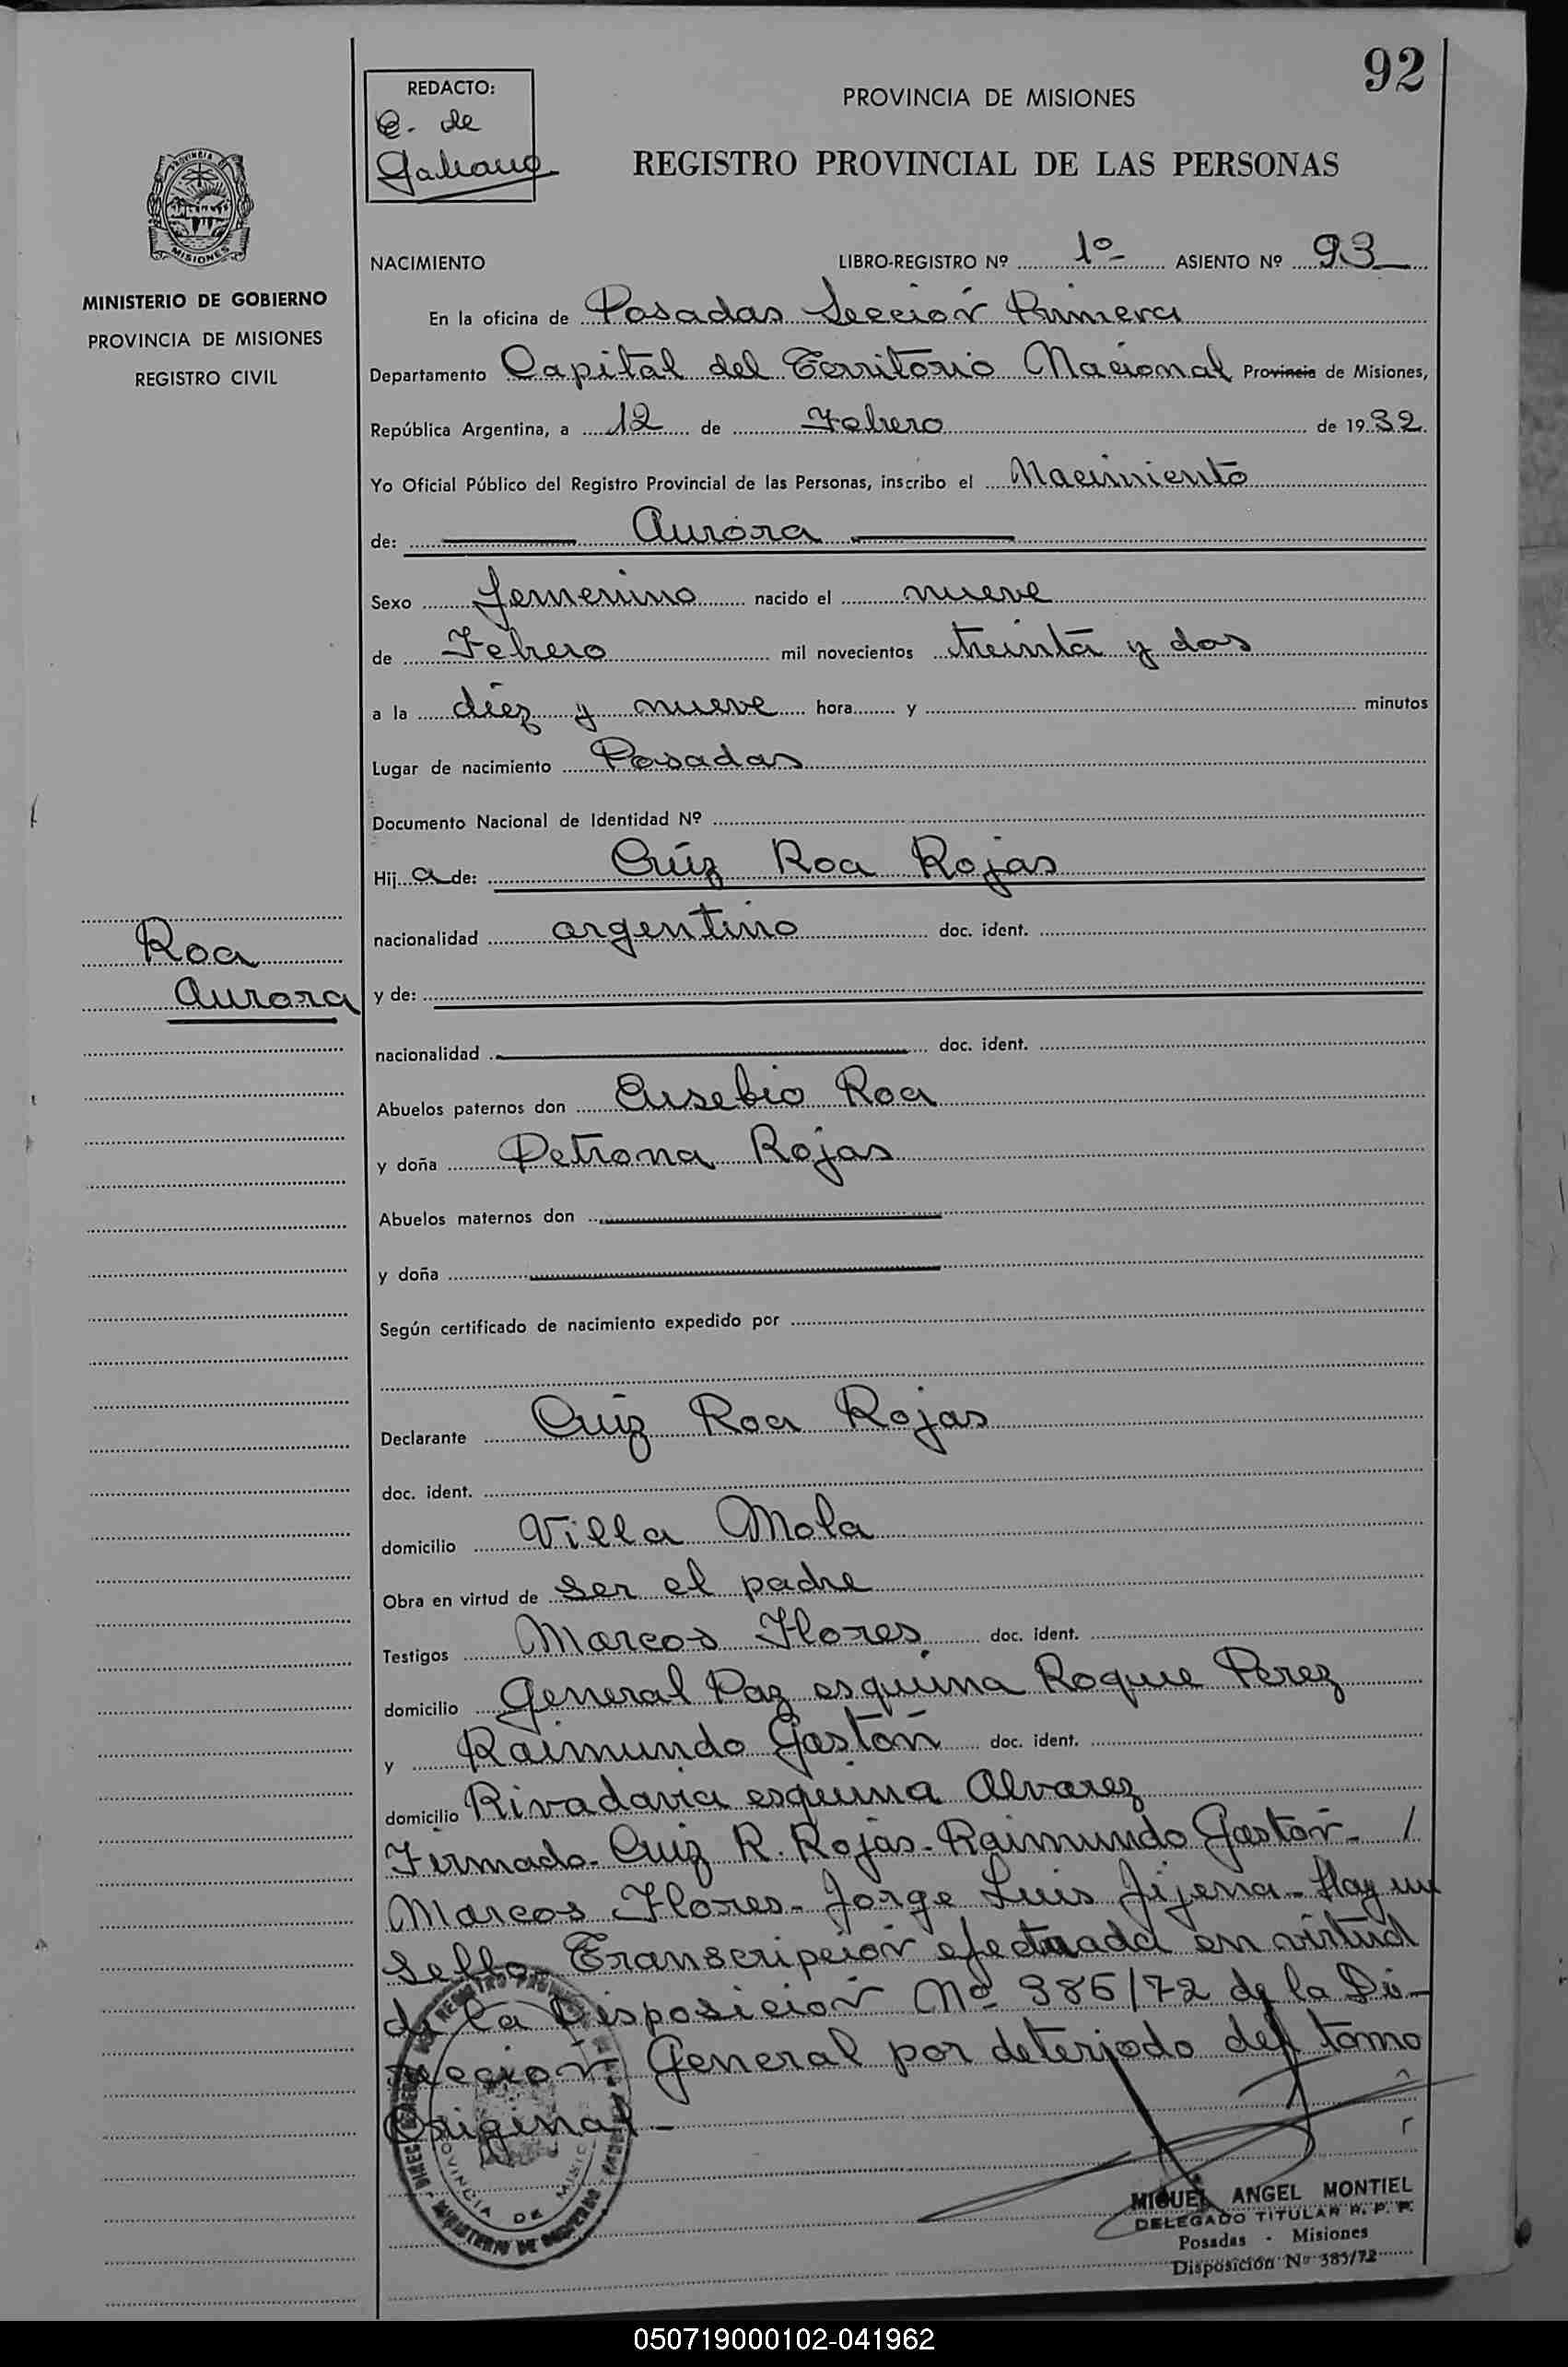 92
REDACTO:
E. de
Galeano
PROVINCIA DE MISIONES
REGISTRO PROVINCIAL DE LAS PERSONAS
PROVINCIA
MISIONES
MINISTERIO DE GOBIERNO
PROVINCIA DE MISIONES
REGISTRO CIVIL
NACIMIENTO LIBRO-REGISTRO Nº 1º- ASIENTO Nº 93
En la oficina de Posadas Sección Primera
Departamento Capital del Territorio Nacional Provincia de Misiones,
República Argentina, a 12 de Febrero de 1932.
Yo Oficial Público del Registro Provincial de las Personas, inscribo el Nacimiento
de: Aurora
Sexo femenino nacido el nueve
de Febrero mil novecientos treinta y dos
a la diez y nueve hora y minutos
Lugar de nacimiento Posadas
Documento Nacional de Identidad Nº
Hij a de: Crúz Roa Rojas
nacionalidad argentino doc. ident.
Roa
Aurora
y de:
nacionalidad doc. ident.
Abuelos paternos don Eusebio Roa
y doña Petrona Rojas
Abuelos maternos don
y doña
Según certificado de nacimiento expedido por
Declarante Crúz Roa Rojas
doc. ident.
domicilio Villa Mola
Obra en virtud de ser el padre
Testigos Marcos Flores doc. ident.
domicilio General Paz esquina Roque Perez
y Raimundo Gastón doc. ident.
domicilio Rivadavia esquina Alvarez
Firmado- Cruz R. Rojas- Raimundo Gastón- /
Marcos Flores- Jorge Luis Jijena- Hay un
Sello Transcripción efectuada en virtud
de la Disposición Nº 385/72 de la Di-
rección General por deteriodo del tomo
Original-
MIGUEL ANGEL MONTIEL
DELEGADO TITULAR R. P. P.
Posadas - Misiones
Disposición Nº 385/72
050719000102-041962